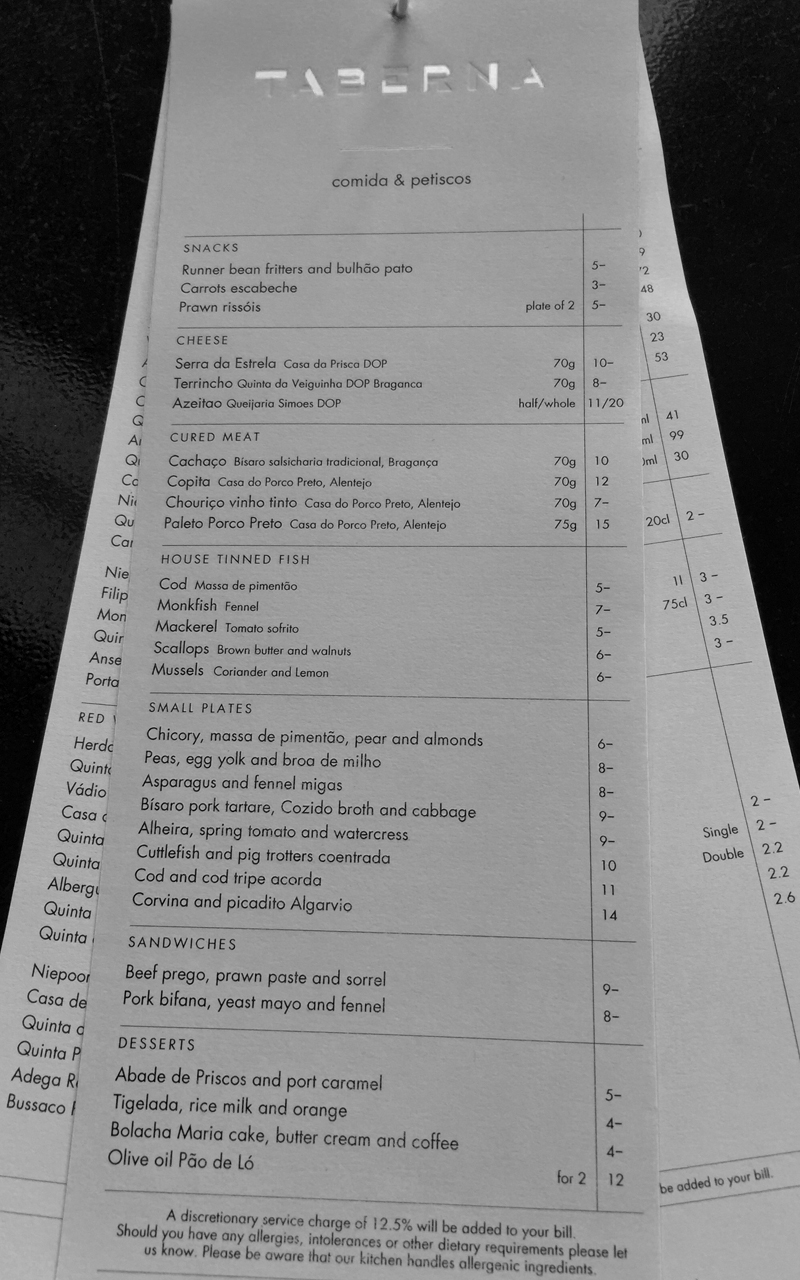 TABERNA
comida & petiscos
SNACKS
Runner bean fritters and bulhão pato 5-
Carrots escabeche 3-
Prawn rissóis plate of 2 5-
CHEESE
Serra da Estrela Casa da Prisca DOP 70g 10-
Terrincho Quinta da Veiguinha DOP Braganca 70g 8-
Azeitao Queijaria Simoes DOP half/whole 11/20
CURED MEAT
Cachaço Bísaro salsicharia tradicional, Bragança 70g 10
Copita Casa do Porco Preto, Alentejo 70g 12
Chouriço vinho tinto Casa do Porco Preto, Alentejo 70g 7-
Paleto Porco Preto Casa do Porco Preto, Alentejo 75g 15
HOUSE TINNED FISH
Cod Massa de pimentão 5-
Monkfish Fennel 7-
Mackerel Tomato sofrito 5-
Scallops Brown butter and walnuts 6-
Mussels Coriander and Lemon 6-
SMALL PLATES
Chicory, massa de pimentão, pear and almonds 6-
Peas, egg yolk and broa de milho 8-
Asparagus and fennel migas 8-
Bísaro pork tartare, Cozido broth and cabbage 9-
Alheira, spring tomato and watercress 9-
Cuttlefish and pig trotters coentrada 10
Cod and cod tripe acorda 11
Corvina and picadito Algarvio 14
SANDWICHES
Beef prego, prawn paste and sorrel 9-
Pork bifana, yeast mayo and fennel 8-
DESSERTS
Abade de Priscos and port caramel 5-
Tigelada, rice milk and orange 4-
Bolacha Maria cake, butter cream and coffee 4-
Olive oil Pão de Ló for 2 12
A discretionary service charge of 12.5% will be added to your bill.
Should you have any allergies, intolerances or other dietary requirements please let
us know. Please be aware that our kitchen handles allergenic ingredients.
Nie
Filip
Mon
Quin
Anse
Porta
RED
Herdo
Quint
Vádio
Casa
Quinta
Quinta
Alberg
Quinta
Quinta
Niepoor
Casa de
Quinta
Quinta P
Adega
Bussaco
9
48
30
23
53
41
ml 99
ml 30
20cl 2-
1l 3-
75cl 3-
3.5
3-
2-
Single 2-
Double 2.2
2.2
2.6
be added to your bill.